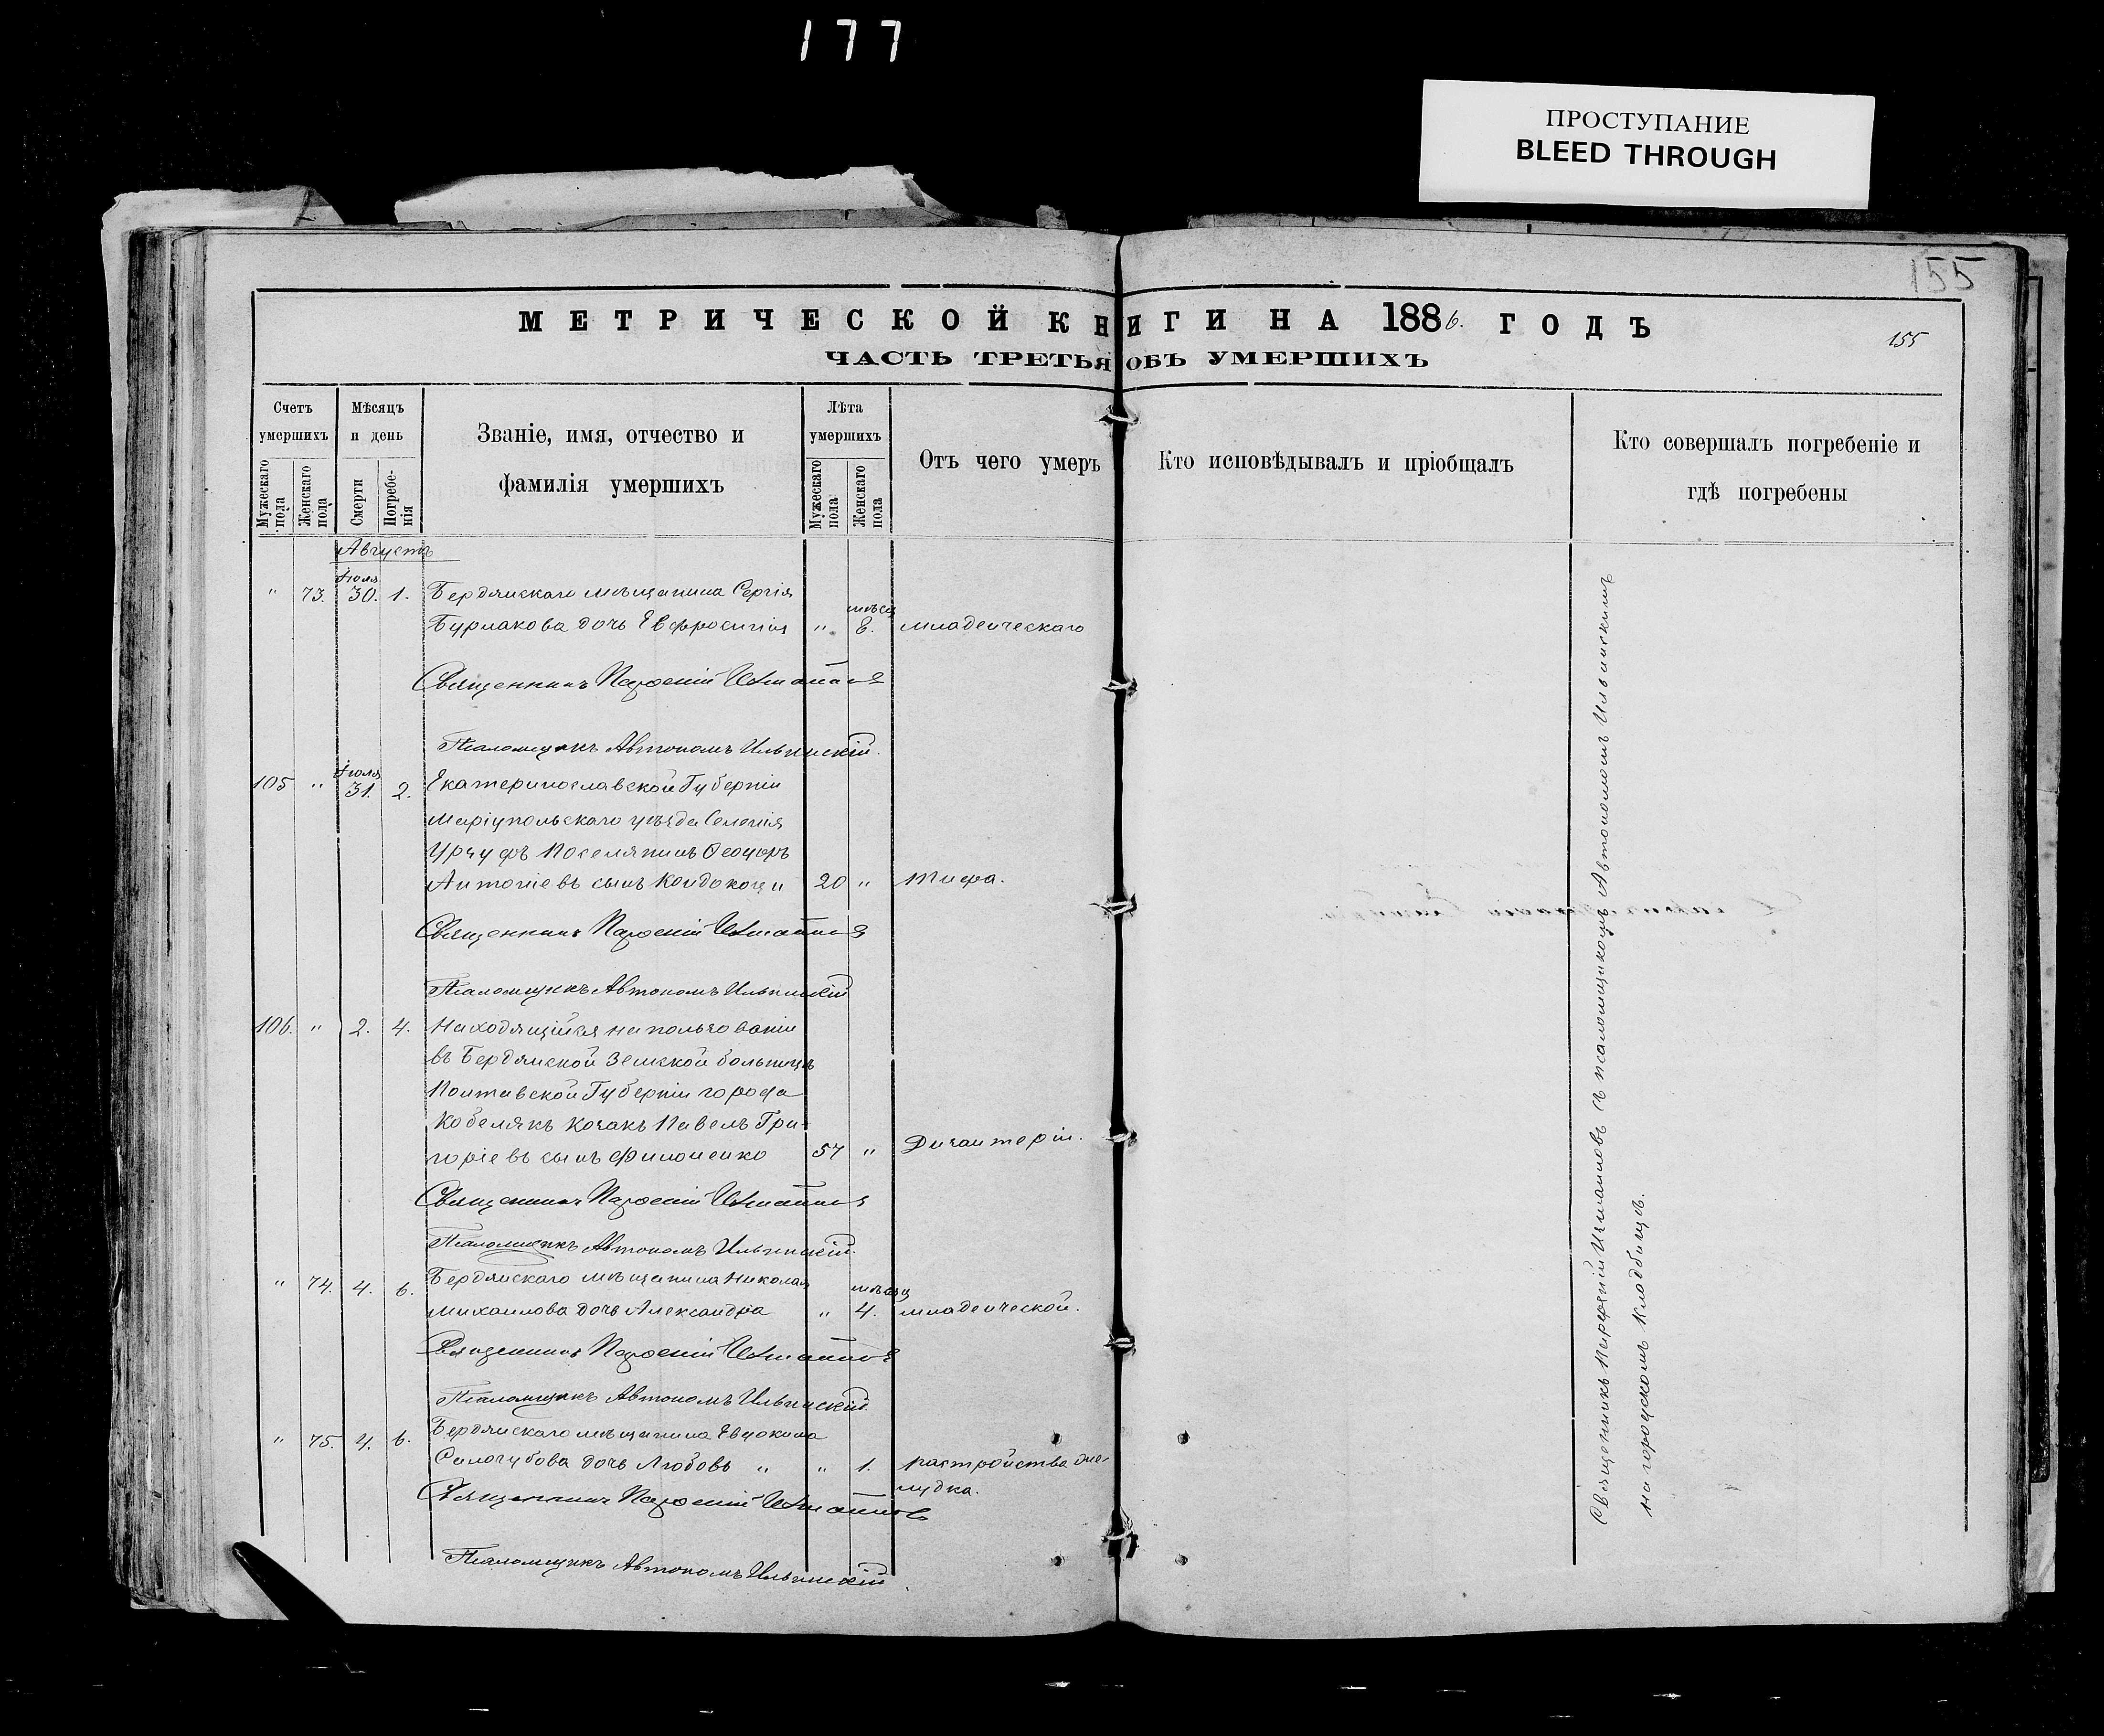 177
ПРОСТУПАНИЕ
BLEED THROUGH
155
МЕТРИЧЕСКОЙ КНИГИ НА 1886. ГОДЪ
155
ЧАСТЬ ТРЕТЬЯ ОБЪ УМЕРШИХЪ
Счетъ умершихъ
Мужескаго пола
Женскаго пола
Мѣсяцъ и день
Смерти
Погребе-нія
Званіе, имя, отчество и
фамилія умершихъ
Лѣта умершихъ
Мужескаго пола
Женскаго пола
Отъ чего умеръ
Кто исповѣдывалъ и пріобщалъ
Кто совершалъ погребеніе и
гдѣ погребены
Августъ
" 73. Іюля 30. 1. Бердянскаго мѣщанина Сергія
Бурлакова дочь Евфросинія " мѣсяц 8. младенческаго
Священникъ Парѳеній
Псаломщикъ Автономъ Ильинскій.
105 " Іюля 31. 2. Екатеринославской Губерніи
Маріупольскаго уѣзда Селенія
Урзуфъ Поселянинъ Ѳеодоръ
Антоніевъ сынъ 20 " тифа.
Священникъ Парѳеній
Псаломщикъ Автономъ Ильинскій
106. " 2. 4. Находящійся на пользованіи
въ Бердянской Земской больницѣ
Полтавской Губерніи города
Кобелякъ Козакъ Павелъ Гри-
горіевъ сынъ Филоненко 57 " Дизентеріи.
Священникъ Парѳеній
Псаломщикъ Автономъ Ильинскій.
" 74. 4. 6. Бердянскаго мѣщанина Николая
Михаилова дочь Александра " мѣсяц 4. младенческой.
Священникъ Парѳеній
Псаломщикъ Автономъ Ильинскій.
" 75. 4. 6. Бердянскаго мѣщанина Евдокима
Сологубова дочь Любовь " " 1. растройства же-
лудка.
Священникъ Парѳеній
Псаломщикъ Автономъ Ильинскій.
Священникъ Парѳеній съ псаломщикомъ Автономомъ Ильинскимъ
на городскомъ кладбищѣ.